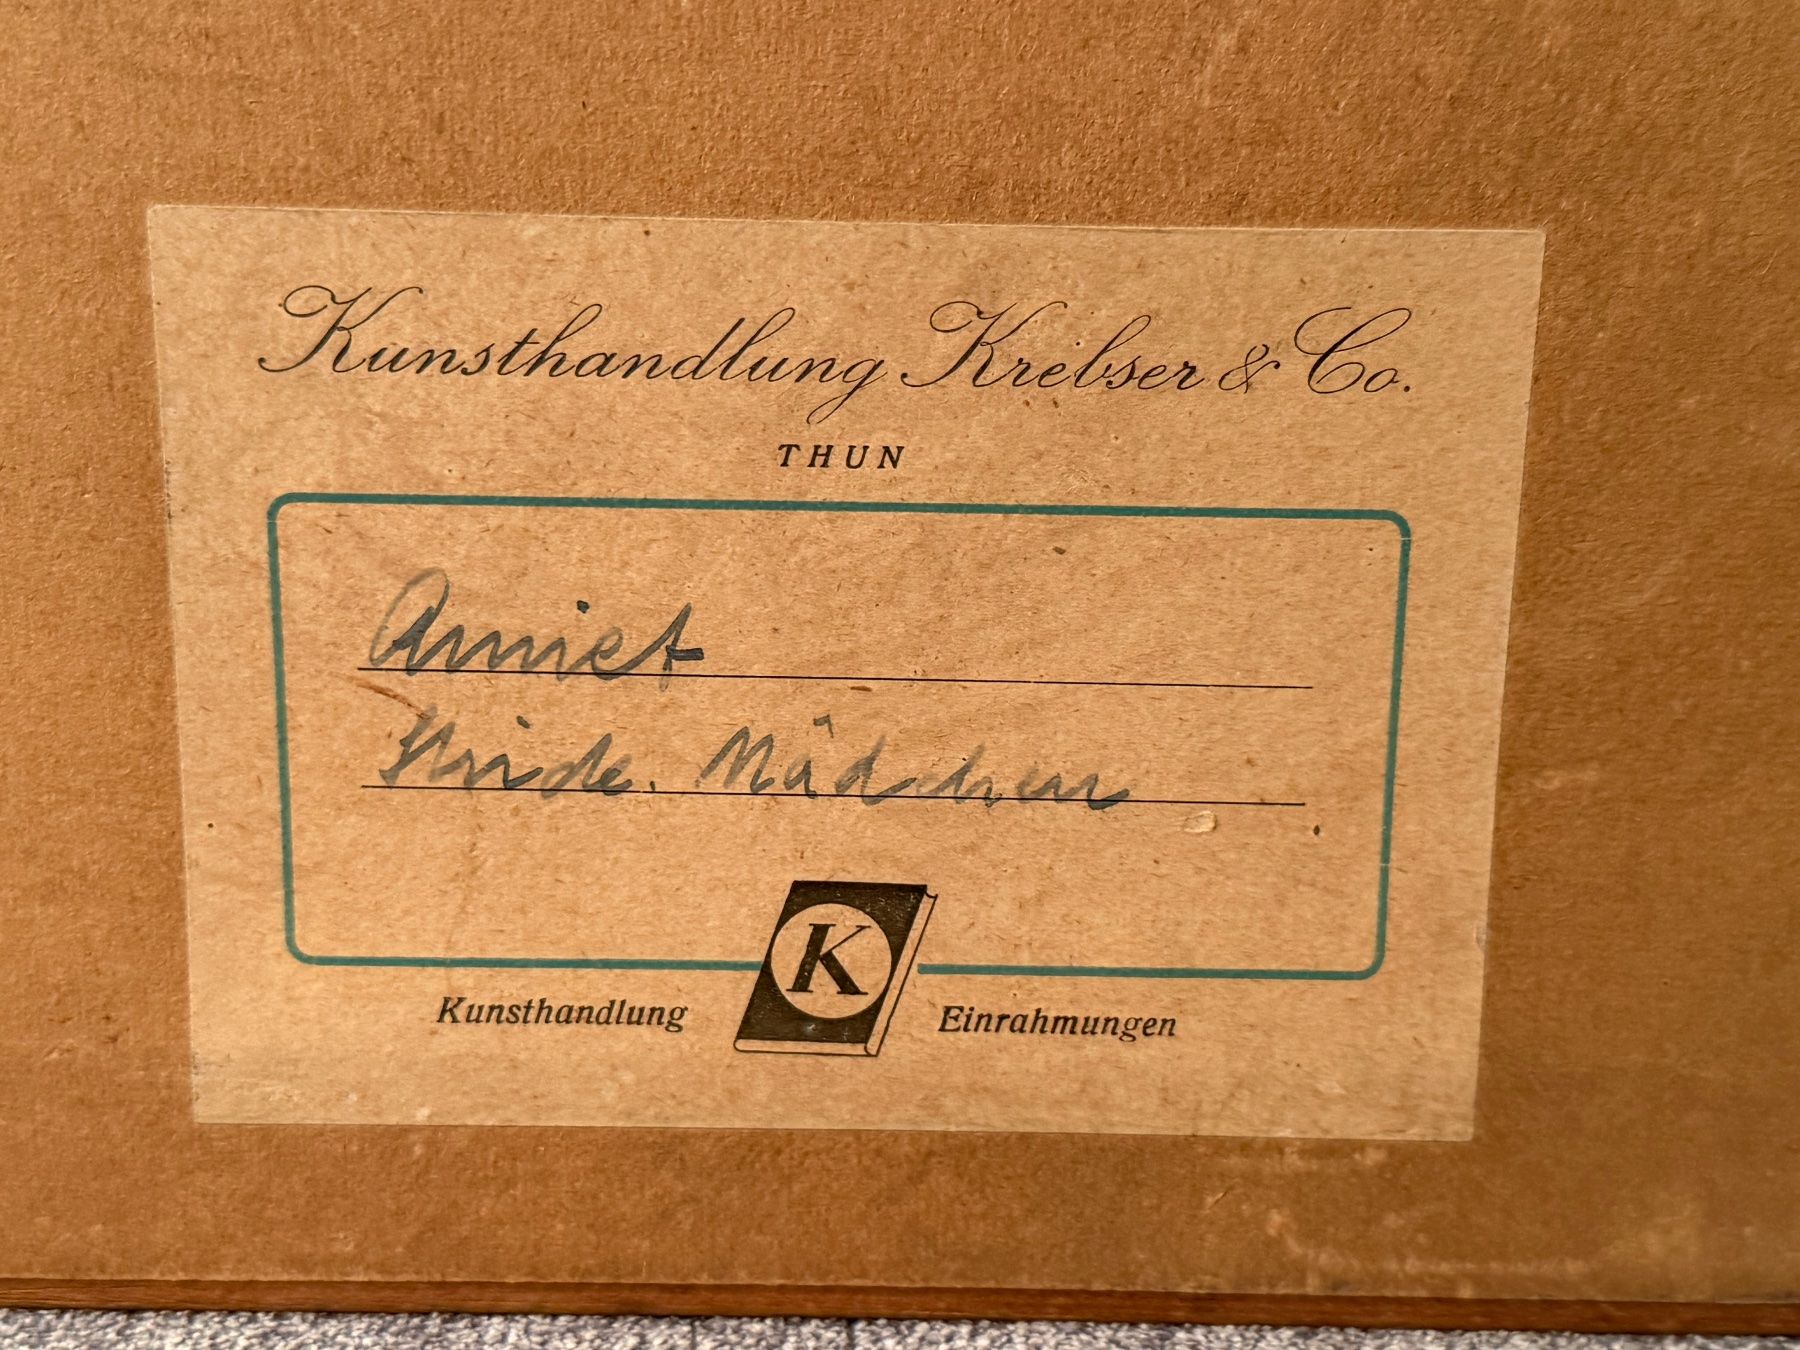 Kunsthandlung Krebser & Co.
THUN
Amiet
Mädchen
K
Kunsthandlung Einrahmungen